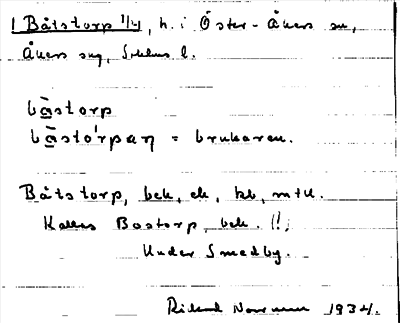 1 Båtstorp 1/4, h. i Öster-Åkers sn,
Åkers sng, Sthlms l.
båstorp
båstórpaŋ = brukaren.
Båtstorp, bek, ek, kb, mtl.
Kallas Bostorp, bek. !!,
Under Smedby.
Rikard 1934.